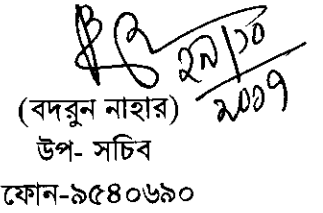 ২৯/১০
২০১৭
(বদরুন নাহার)
উপ- সচিব
ফোন-৯৫৪০৬৯০